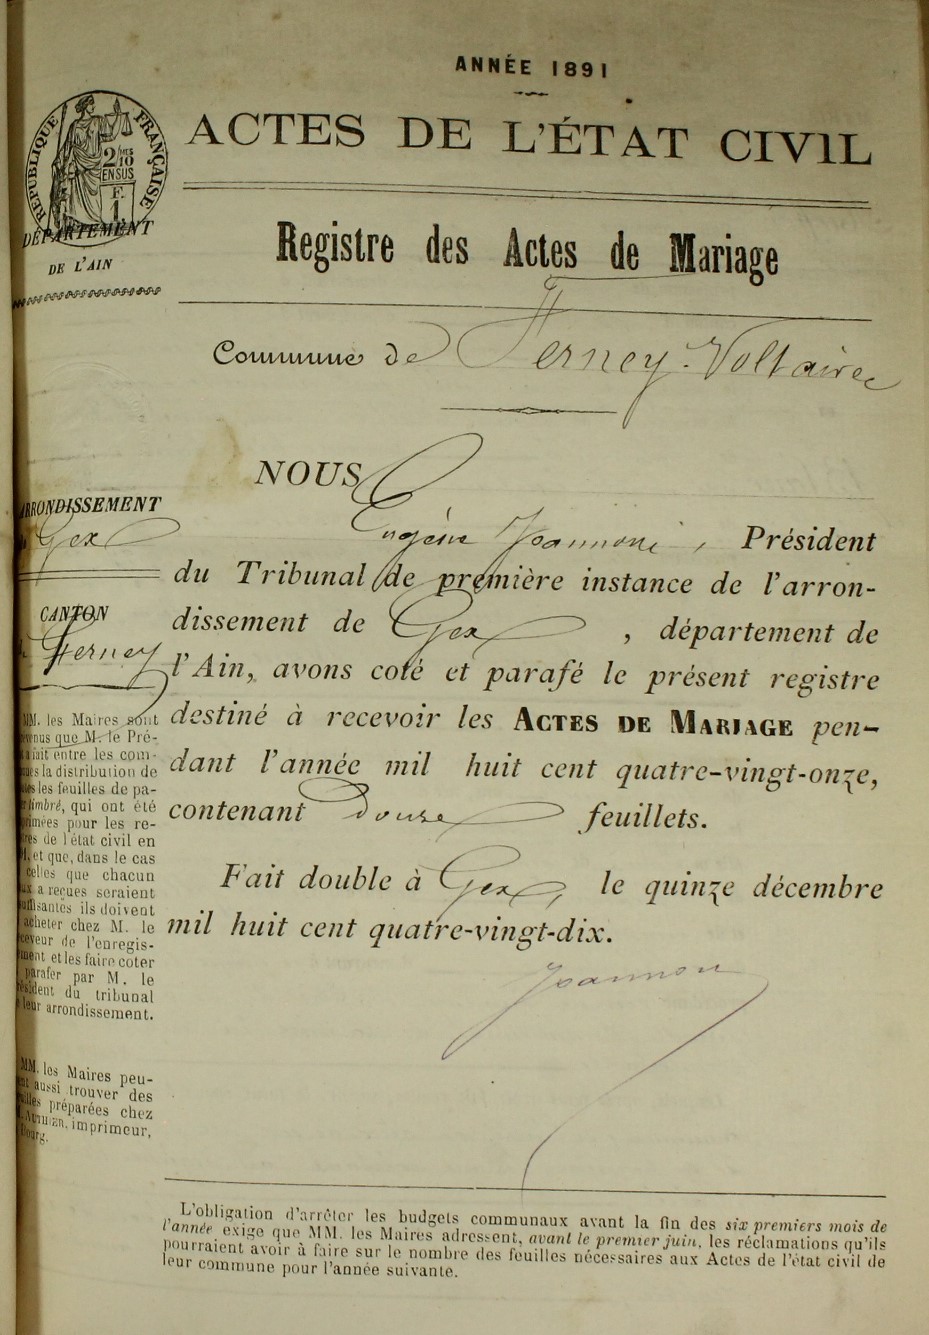 ANNÉE 1891
ACTES DE L'ÉTAT CIVIL
RÉPUBLIQUE FRANÇAISE
2/10
EN SUS
F.
1
DÉPARTEMENT
DE L'AIN
Registre des Actes de Mariage
Commune de Ferney-Voltaire
NOUS
Eugène Joannon, Président
du Tribunal de première instance de l'arron-
dissement de Gex, département de
l'Ain, avons coté et parafé le présent registre
destiné à recevoir les ACTES DE MARIAGE pen-
dant l'année mil huit cent quatre-vingt-onze,
contenant Douze feuillets.
Fait double à Gex, le quinze décembre
mil huit cent quatre-vingt-dix.
Joannon
RRONDISSEMENT
Gex
CANTON
Ferney
MM. les Maires sont
venus que M. le Pré-
fait entre les com-
la distribution de
les feuilles de pa-
timbré, qui ont été
imées pour les re-
res de l'état civil en
et que, dans le cas
celles que chacun
ux a reçues seraient
uffisantes ils doivent
acheter chez M. le
ceveur de l'enregis-
ment et les faire coter
parafer par M. le
sident du tribunal
leur arrondissement.
MM. les Maires peu-
aussi trouver des
préparées chez
imprimeur,
Bourg.
L'obligation d'arrêter les budgets communaux avant la fin des six premiers mois de
l'année exige que MM. les Maires adressent, avant le premier juin, les réclamations qu'ils
pourraient avoir à faire sur le nombre des feuilles nécessaires aux Actes de l'état civil de
leur commune pour l'année suivante.